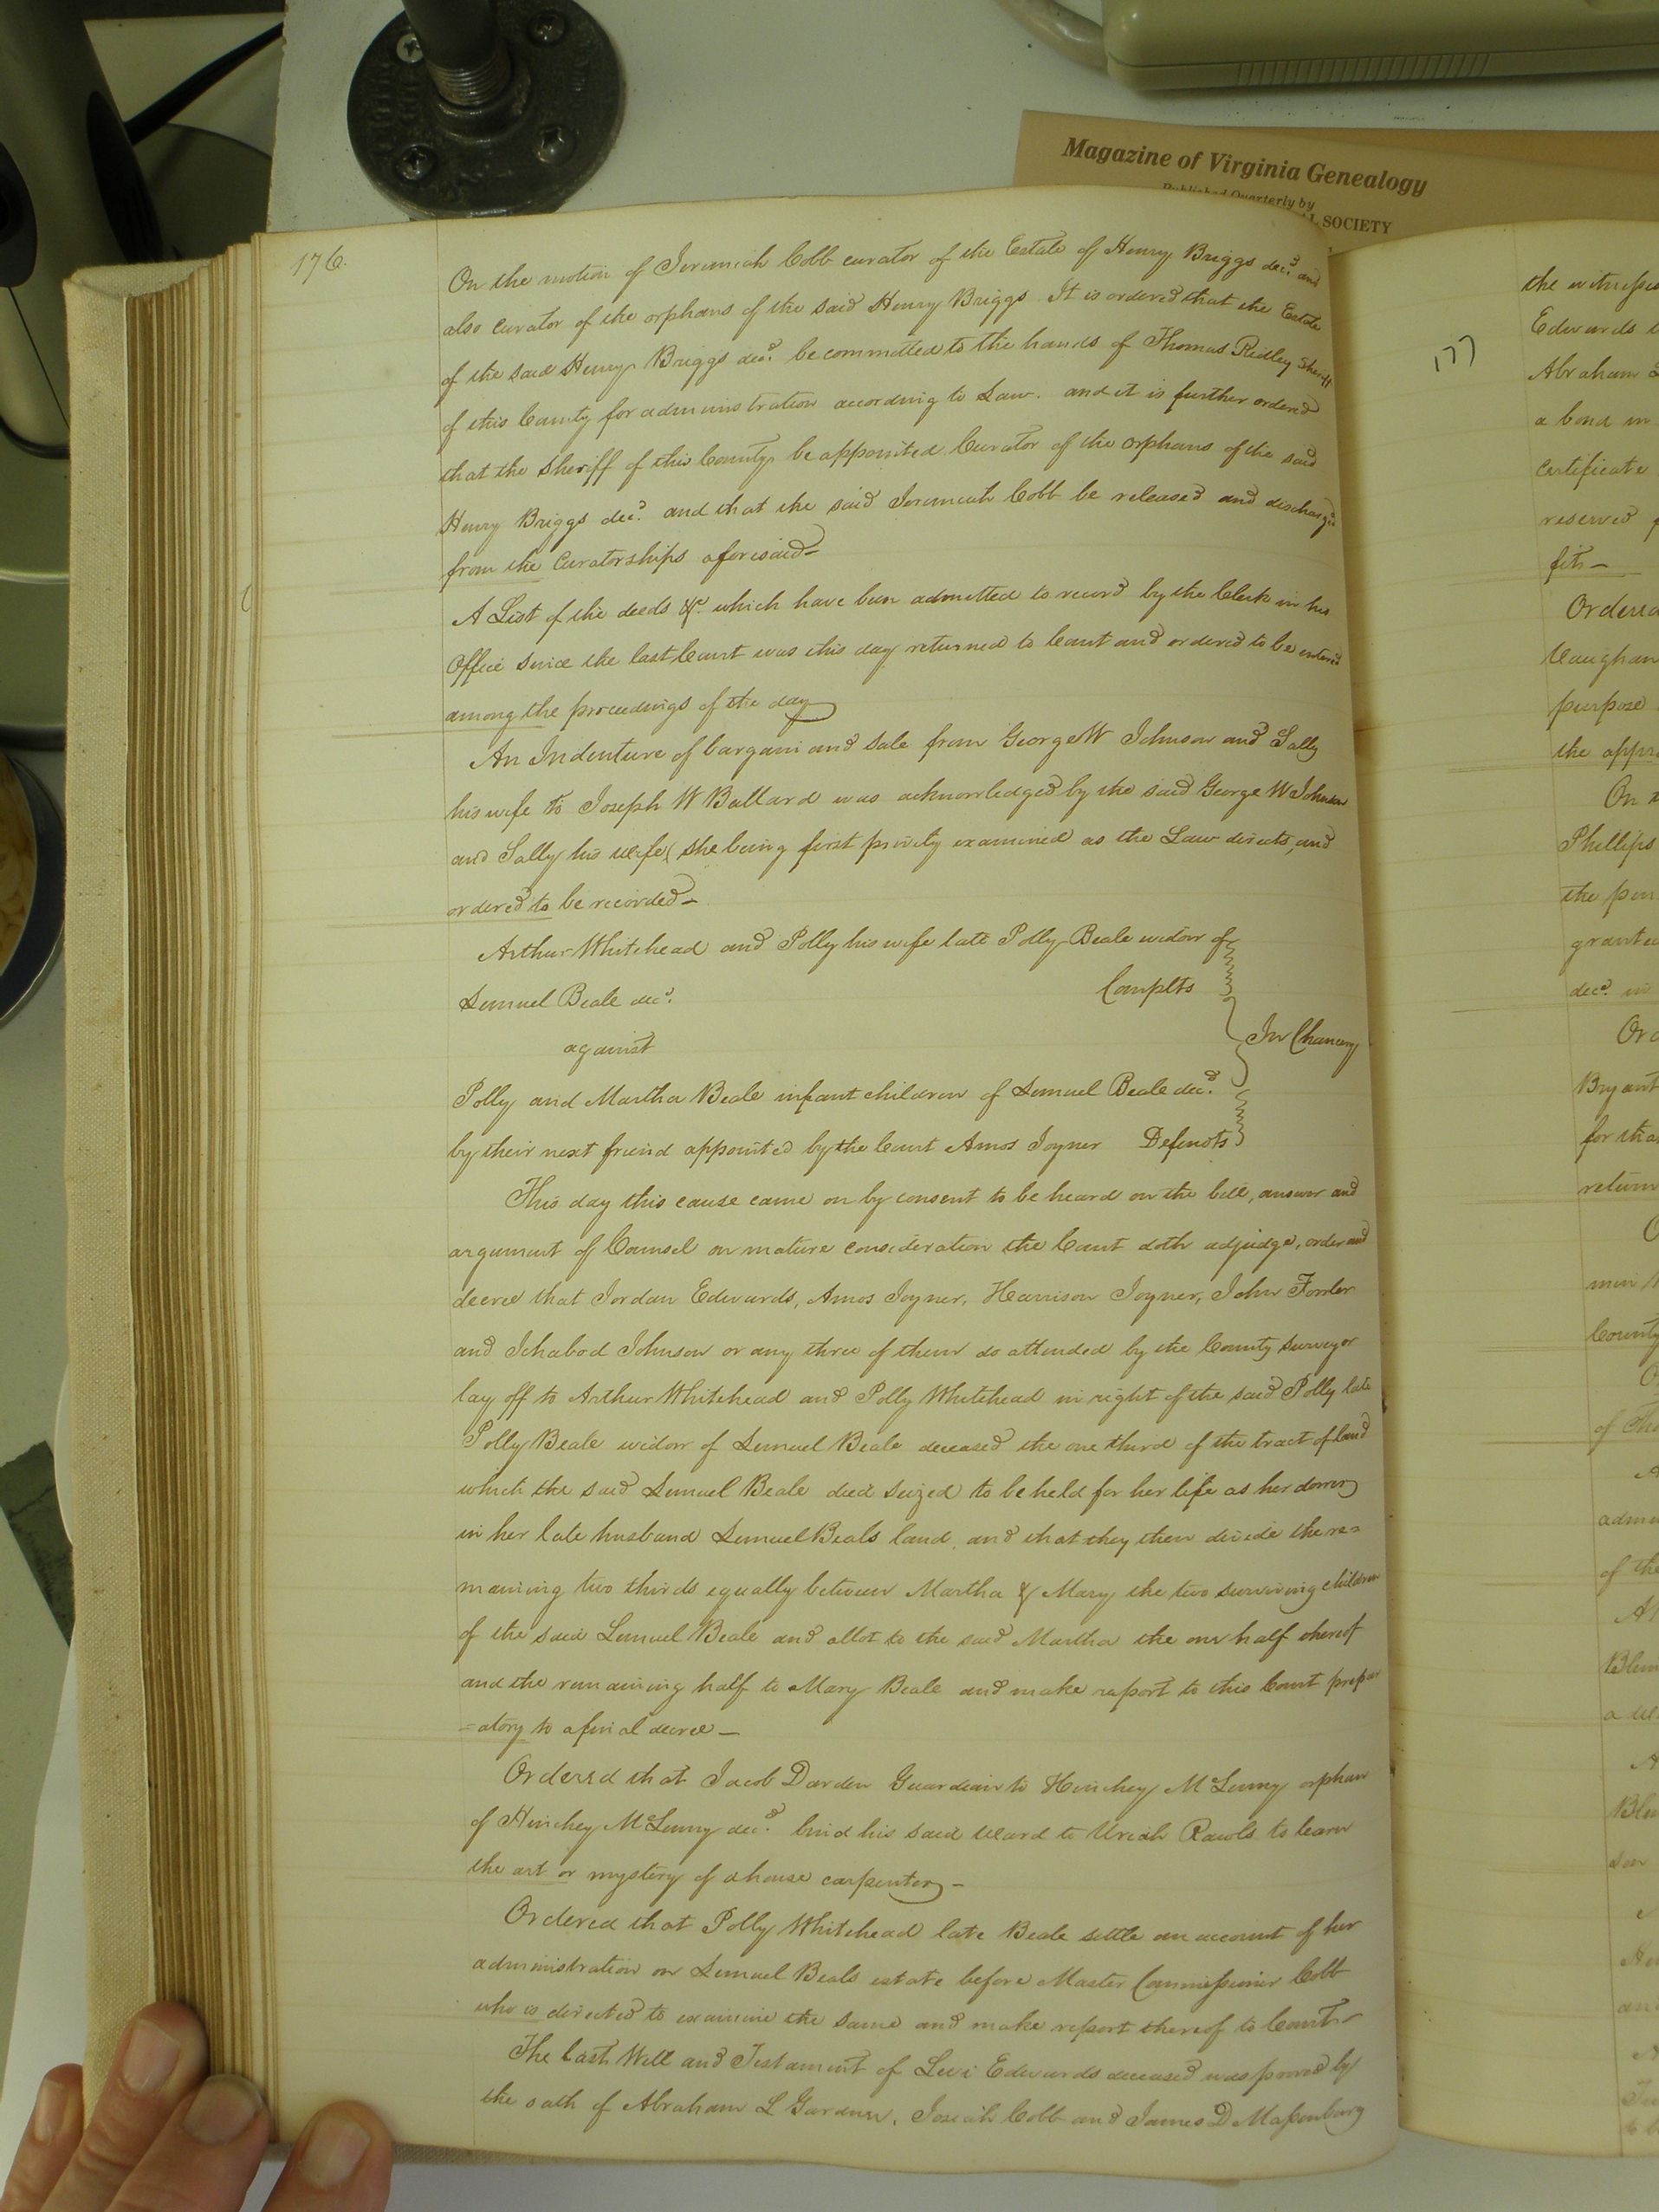 Magazine of Virginia Genealogy
Published Quarterly by
L SOCIETY
176.
On the motion of Jeremiah Cobb curator of the Estate of Henry Briggs decd. and
also curator of the orphans of the said Henry Briggs. It is ordered that the Estate
of the said Henry Briggs decd. be committed to the hands of Thomas Ridley Sheriff
of this County for administration according to Law. and it is further ordered
that the Sheriff of this County be appointed Curator of the orphans of the said
Henry Briggs decd. and that the said Jeremiah Cobb be released and discharged
from the Curatorships aforesaid—
A List of the deeds &c. which have been admitted to record by the Clerk in his
Office since the last Court was this day returned to Court and ordered to be entered
among the proceedings of the day
An Indenture of bargain and sale from George W Johnson and Sally
his wife to Joseph W Ballard was acknowledged by the said George W Johnson
and Sally his wife (she being first privily examined as the Law directs, and
ordered to be recorded—
Arthur Whitehead and Polly his wife late Polly Beale widow of
Lemuel Beale decd. Complts
In Chancery
against
Polly and Martha Beale infant children of Lemuel Beale decd.
by their next friend appointed by the Court Amos Joyner Defendts
This day this cause came on by consent to be heard on the bill, answer and
argument of Counsel on mature consideration the Court doth adjudge, order and
decree that Jordan Edwards, Amos Joyner, Harrison Joyner, John Fowler
and Ichabod Johnson or any three of them do attended by the County surveyor
lay off to Arthur Whitehead and Polly Whitehead in right of the said Polly late
Polly Beale widow of Lemuel Beale deceased the one third of the tract of land
which the said Lemuel Beale died seized to be held for her life as her dower
in her late husband Lemuel Beals land, and that they then divide the re=
maining two thirds equally between Martha & Mary the two surviving children
of the said Lemuel Beale and allot to the said Martha the one half thereof
and the remaining half to Mary Beale and make report to this Court prepar
=atory to a final decree—
Ordered that Jacob Darden Guardian to Hinchey McLenny orphan
of Hinchey McLenny decd. bind his said Ward to Uriah Rawls to learn
the art or mystery of a house carpenter—
Ordered that Polly Whitehead late Beale settle an account of her
administration on Lemuel Beals estate before Master Commissioner Cobb
who is directed to examine the same and make report thereof to Court—
The last Will and Testament of Levi Edwards deceased was proved by
the oath of Abraham L Gardner, Josiah Cobb and James D Massenburg
177
the witnesses
Edwards
Abraham
a bond in
certificate
reserved
fit—
Ordered
Vaughan
purpose
the appr
On
Phillips
the pen
granted
decd. in
Or
Bryant
for tha
return
men
County
of
admin
of the
a